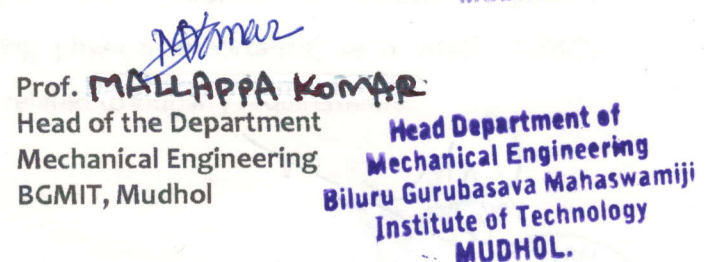 Prof. MALLAPPA KOMAR
Head of the Department
Mechanical Engineering
BGMIT, Mudhol
Head Department of
Mechanical Engineering
Biluru Gurubasava Mahaswamiji
Institute of Technology
MUDHOL.